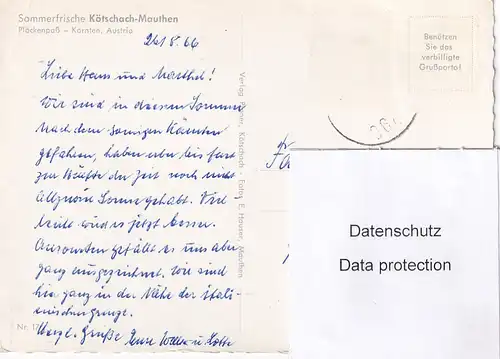 Sommerfrische Kötschach-Mauthen
Plöckenpaß – Kärnten, Austria
26/8.66
Liebe Hans und Marthel!
Wir sind in diesem Sommer
nach dem sonnigen Kärnten
gefahren, haben aber bis fast
zur Hälfte der Zeit noch nicht
allzuviel Sonne gehabt. Viel-
leicht wird es jetzt besser.
Ansonsten gefällt es uns aber
ganz ausgezeichnet. Wir sind
hier ganz in der Nähe der Itali-
enischen Grenze.
Herzl. Grüße Eure Willi u. Lotte
Nr. 17
Verlag Kötschach - Fotos E. Hauser, Mauthen
Benützen
Sie das
verbilligte
Grußporto!
Datenschutz
Data protection